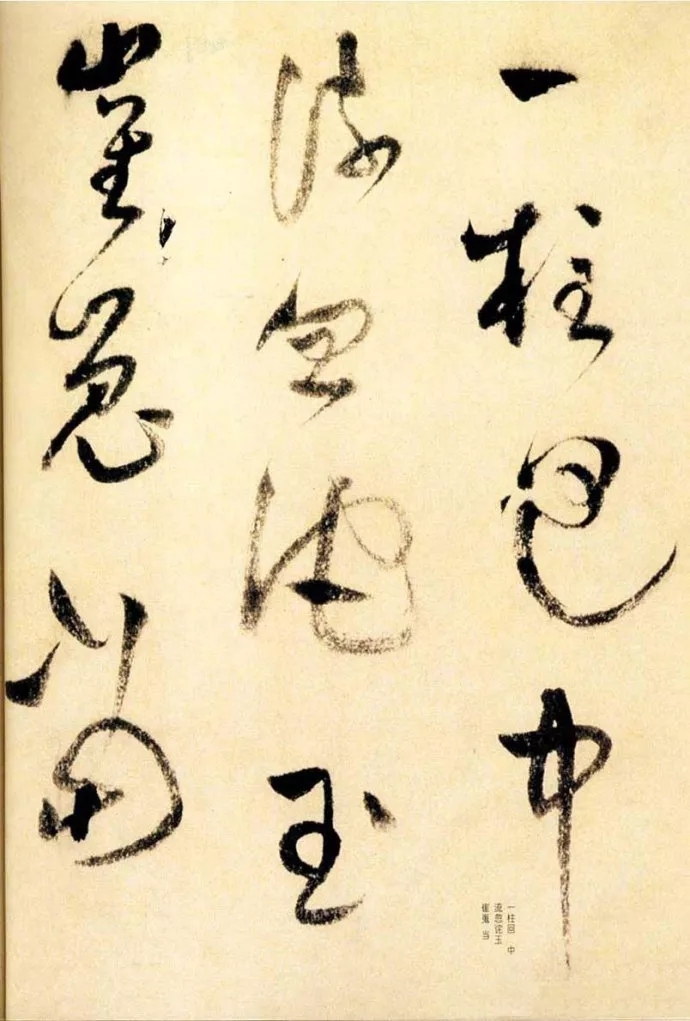 一柱回中
流忽詫玉
崔嵬當
一柱回 中
流忽诧玉
崔嵬 当